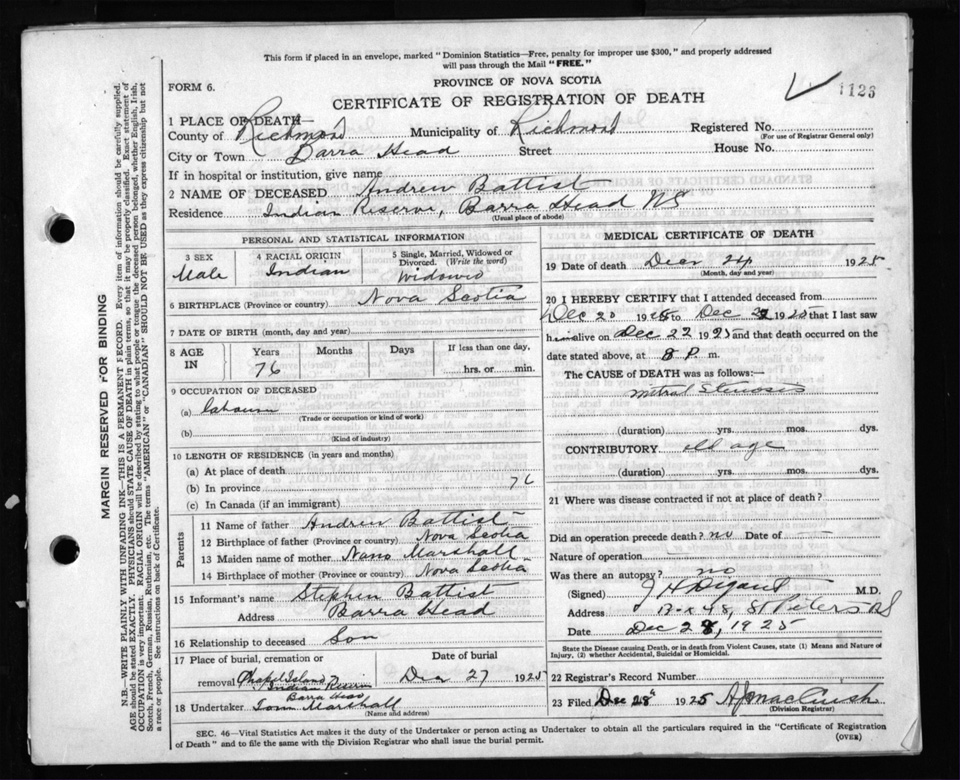 This form if placed in an envelope, marked "Dominion Statistics—Free, penalty for improper use $300," and properly addressed
will pass through the Mail "FREE."
FORM 6.
PROVINCE OF NOVA SCOTIA
CERTIFICATE OF REGISTRATION OF DEATH
1126
1 PLACE OF DEATH—
County of Richmond Municipality of Richmond Registered No.
(For use of Registrar General only)
City or Town Barra Head Street House No.
If in hospital or institution, give name
2 NAME OF DECEASED Andrew Battist
Residence Indian Reserve, Barra Head NS
(Usual place of abode)
PERSONAL AND STATISTICAL INFORMATION
3 SEX 4 RACIAL ORIGIN 5 Single, Married, Widowed or Divorced. (Write the word)
Male Indian Widowed
6 BIRTHPLACE (Province or country) Nova Scotia
7 DATE OF BIRTH (month, day and year)
8 AGE IN Years Months Days If less than one day.
76 hrs. or min.
9 OCCUPATION OF DECEASED
(a)
(Trade or occupation or kind of work)
(b)
(Kind of industry)
10 LENGTH OF RESIDENCE (in years and months)
(a) At place of death
(b) In province 76
(c) In Canada (if an immigrant)
Parents
11 Name of father Andrew Battist
12 Birthplace of father (Province or country) Nova Scotia
13 Maiden name of mother Nano Marshall
14 Birthplace of mother (Province or country) Nova Scotia
15 Informant's name Stephen Battist
Address Barra Head
16 Relationship to deceased Son
17 Place of burial, cremation or removal Chapel Island, Indian Reserve Barra Head
Date of burial Dec 27 1925
18 Undertaker Tom Marshall
(Name and address)
MEDICAL CERTIFICATE OF DEATH
19 Date of death Dec 24 1925
(Month, day and year)
20 I HEREBY CERTIFY that I attended deceased from
Dec 20 1925 to Dec 1925 that I last saw
him alive on Dec 22 1925 and that death occurred on the
date stated above, at 8 P. m.
The CAUSE OF DEATH was as follows:—
Mitral Stenosis
(duration) yrs. mos. dys.
CONTRIBUTORY old age
(duration) yrs. mos. dys.
21 Where was disease contracted if not at place of death?
Did an operation precede death? no Date of
Nature of operation
Was there an autopsy? no
(Signed) M.D.
Address Box 48, St Peters NS
Date Dec 28, 1925
State the Disease causing Death, or in death from Violent Causes, state (1) Means and Nature of
Injury, (2) whether Accidental, Suicidal or Homicidal.
22 Registrar's Record Number
23 Filed Dec 28th 1925
(Division Registrar)
SEC. 46—Vital Statistics Act makes it the duty of the Undertaker or person acting as Undertaker to obtain all the particulars required in the "Certificate of Registration
of Death" and to file the same with the Division Registrar who shall issue the burial permit.
(OVER)
MARGIN RESERVED FOR BINDING
N.B.—WRITE PLAINLY WITH UNFADING INK—THIS IS A PERMANENT RECORD. Every item of information should be carefully supplied.
AGE should be stated EXACTLY. PHYSICIANS should STATE CAUSE OF DEATH in plain terms, so that it may be properly classified. Exact statement of
OCCUPATION is very important. RACIAL ORIGIN will be described by stating to what people or tongue the deceased person belonged, whether English, Irish,
Scotch, French, German, Russian, Ruthenian, etc. The terms "AMERICAN" or "CANADIAN" SHOULD NOT BE USED as they express citizenship but not
a race or people. See instructions on back of Certificate.